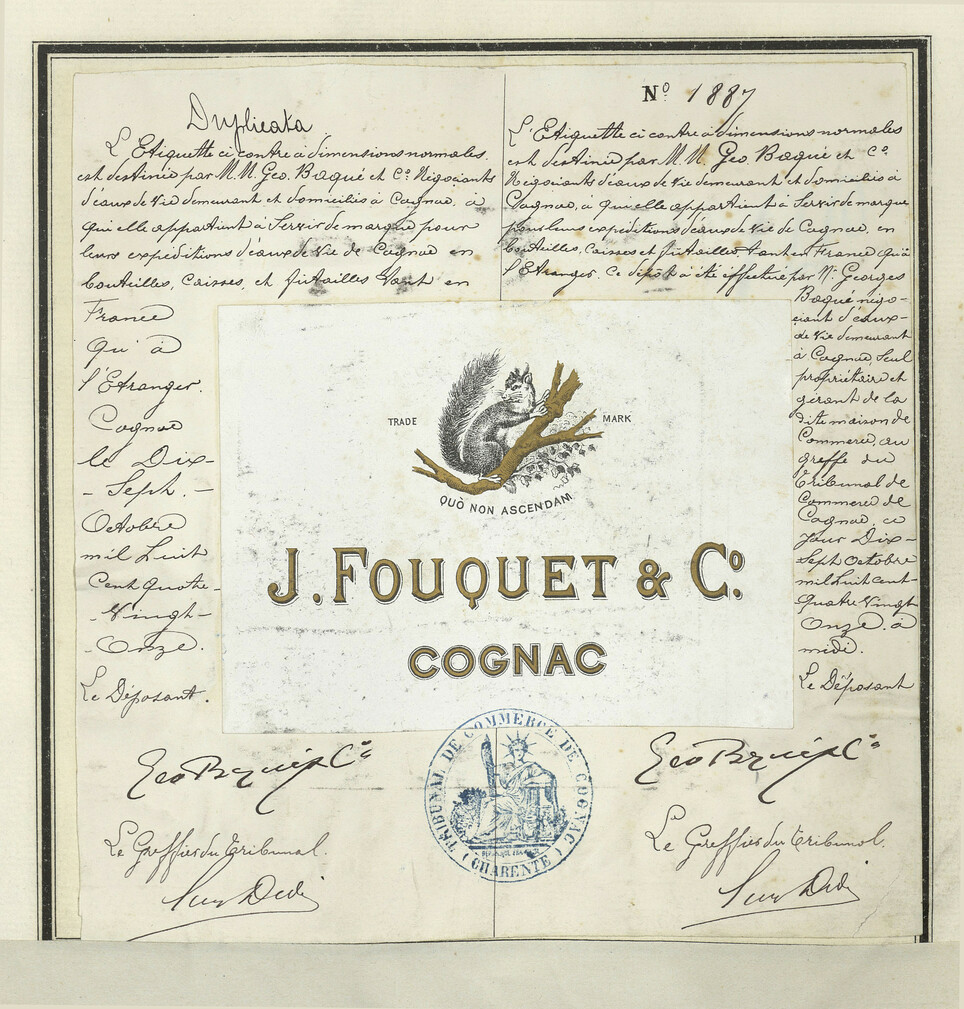 Duplicata
L'Etiquette ci contre à dimensions normales
est destinée par M.M. Geo. Baqué et Co. Négociants
d'eaux de Vie demeurant et domiciliés à Cognac, à
qui elle appartient à Servir de marque pour
leurs expéditions d'eaux de Vie de Cognac en
bouteilles, Caisses, et futailles tant en
France
qu'à
l'Etranger.
Cognac
le Dix-
- Sept. -
Octobre
mil huit
Cent quatre
- Vingt-
- Onze.
Le Déposant.
Geo Baqué & Co
Le Greffier du tribunal.
No 1887
L'Etiquette ci contre à dimensions normales
est destinée par M.M. Geo. Baqué et Co.
Négociants d'eaux de Vie demeurant et domiciliés à
Cognac, à qui elle appartient à Servir de marque
pour leurs expéditions d'eaux de Vie de Cognac, en
bouteilles, Caisses et futailles, tant en France qu'à
l'Etranger. Ce dépôt a été effectué par Mr. Georges
Baqué négo-
ciant d'eaux-
de Vie demeurant
à Cognac, Seul
propriétaire et
gérant de la
dite maison de
Commerce, au
greffe du
tribunal de
Commerce de
Cognac, ce
jour Dix-
Sept Octobre
mil huit cent
quatre Vingt
Onze. à
midi.
Le Déposant
Geo Baqué & Co
Le Greffier du tribunal.
TRADE MARK
QUÒ NON ASCENDAM
J. FOUQUET & Co.
COGNAC
TRIBUNAL DE COMMERCE DE COGNAC
(CHARENTE)